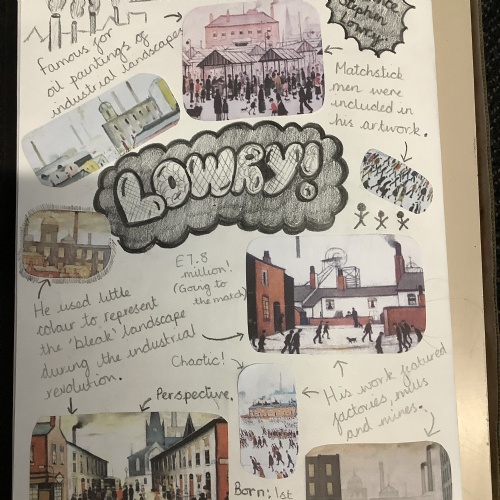 Stephen
Lowry.
Famous for
oil paintings of
industrial landscapes
Matchstick
men were
included in
his artwork.
LOWRY!
£7.8
million!
(Going to
the match)
He used little
colour to represent
the 'bleak' landscape
during the industrial
revolution.
Chaotic!
Perspective.
His work featured
factories, mills
and mines.
Born: 1st